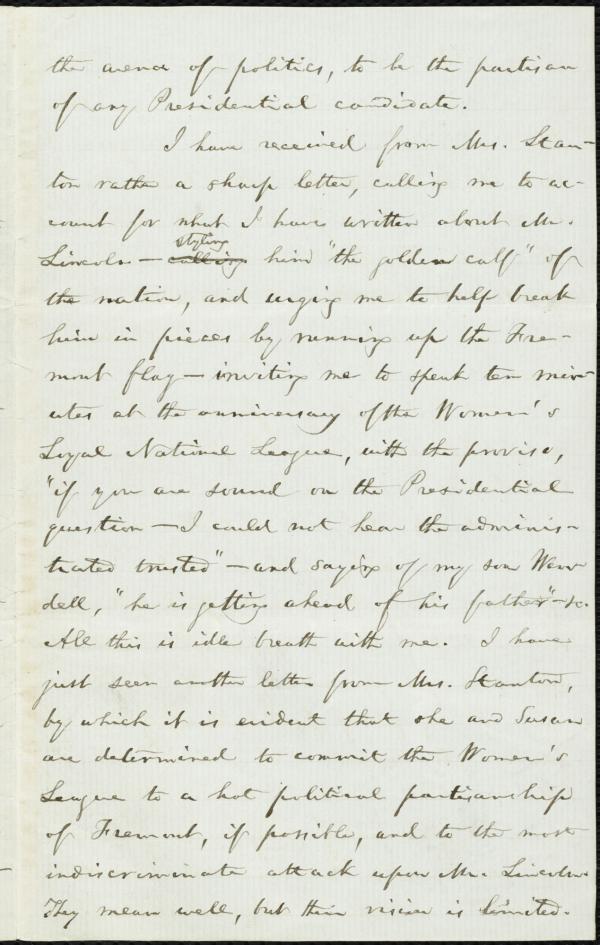 the arena of politics, to be the partisan
of any Presidential candidate.
I have received from Mrs. Stan-
ton rather a sharp letter, calling me to ac-
count for what I have written about Mr.
styling
Lincoln — calling him "the golden calf" of
the nation, and urging me to help break
him in pieces by running up the Fre-
mont flag — inviting me to speak ten min-
utes at the anniversary of the Women's
Loyal National League, with the proviso,
"if you are sound on the Presidential
question — I could not hear the adminis-
trated trusted" — and saying of my son Wen-
dell, "he is getting ahead of his father" — &c.
All this is idle breath with me. I have
just seen another letter from Mrs. Stanton,
by which it is evident that she and Susan
are determined to commit the Women's
League to a hot political partisanship
of Fremont, if possible, and to the most
indiscriminate attack upon Mr. Lincoln.
They mean well, but their vision is limited.